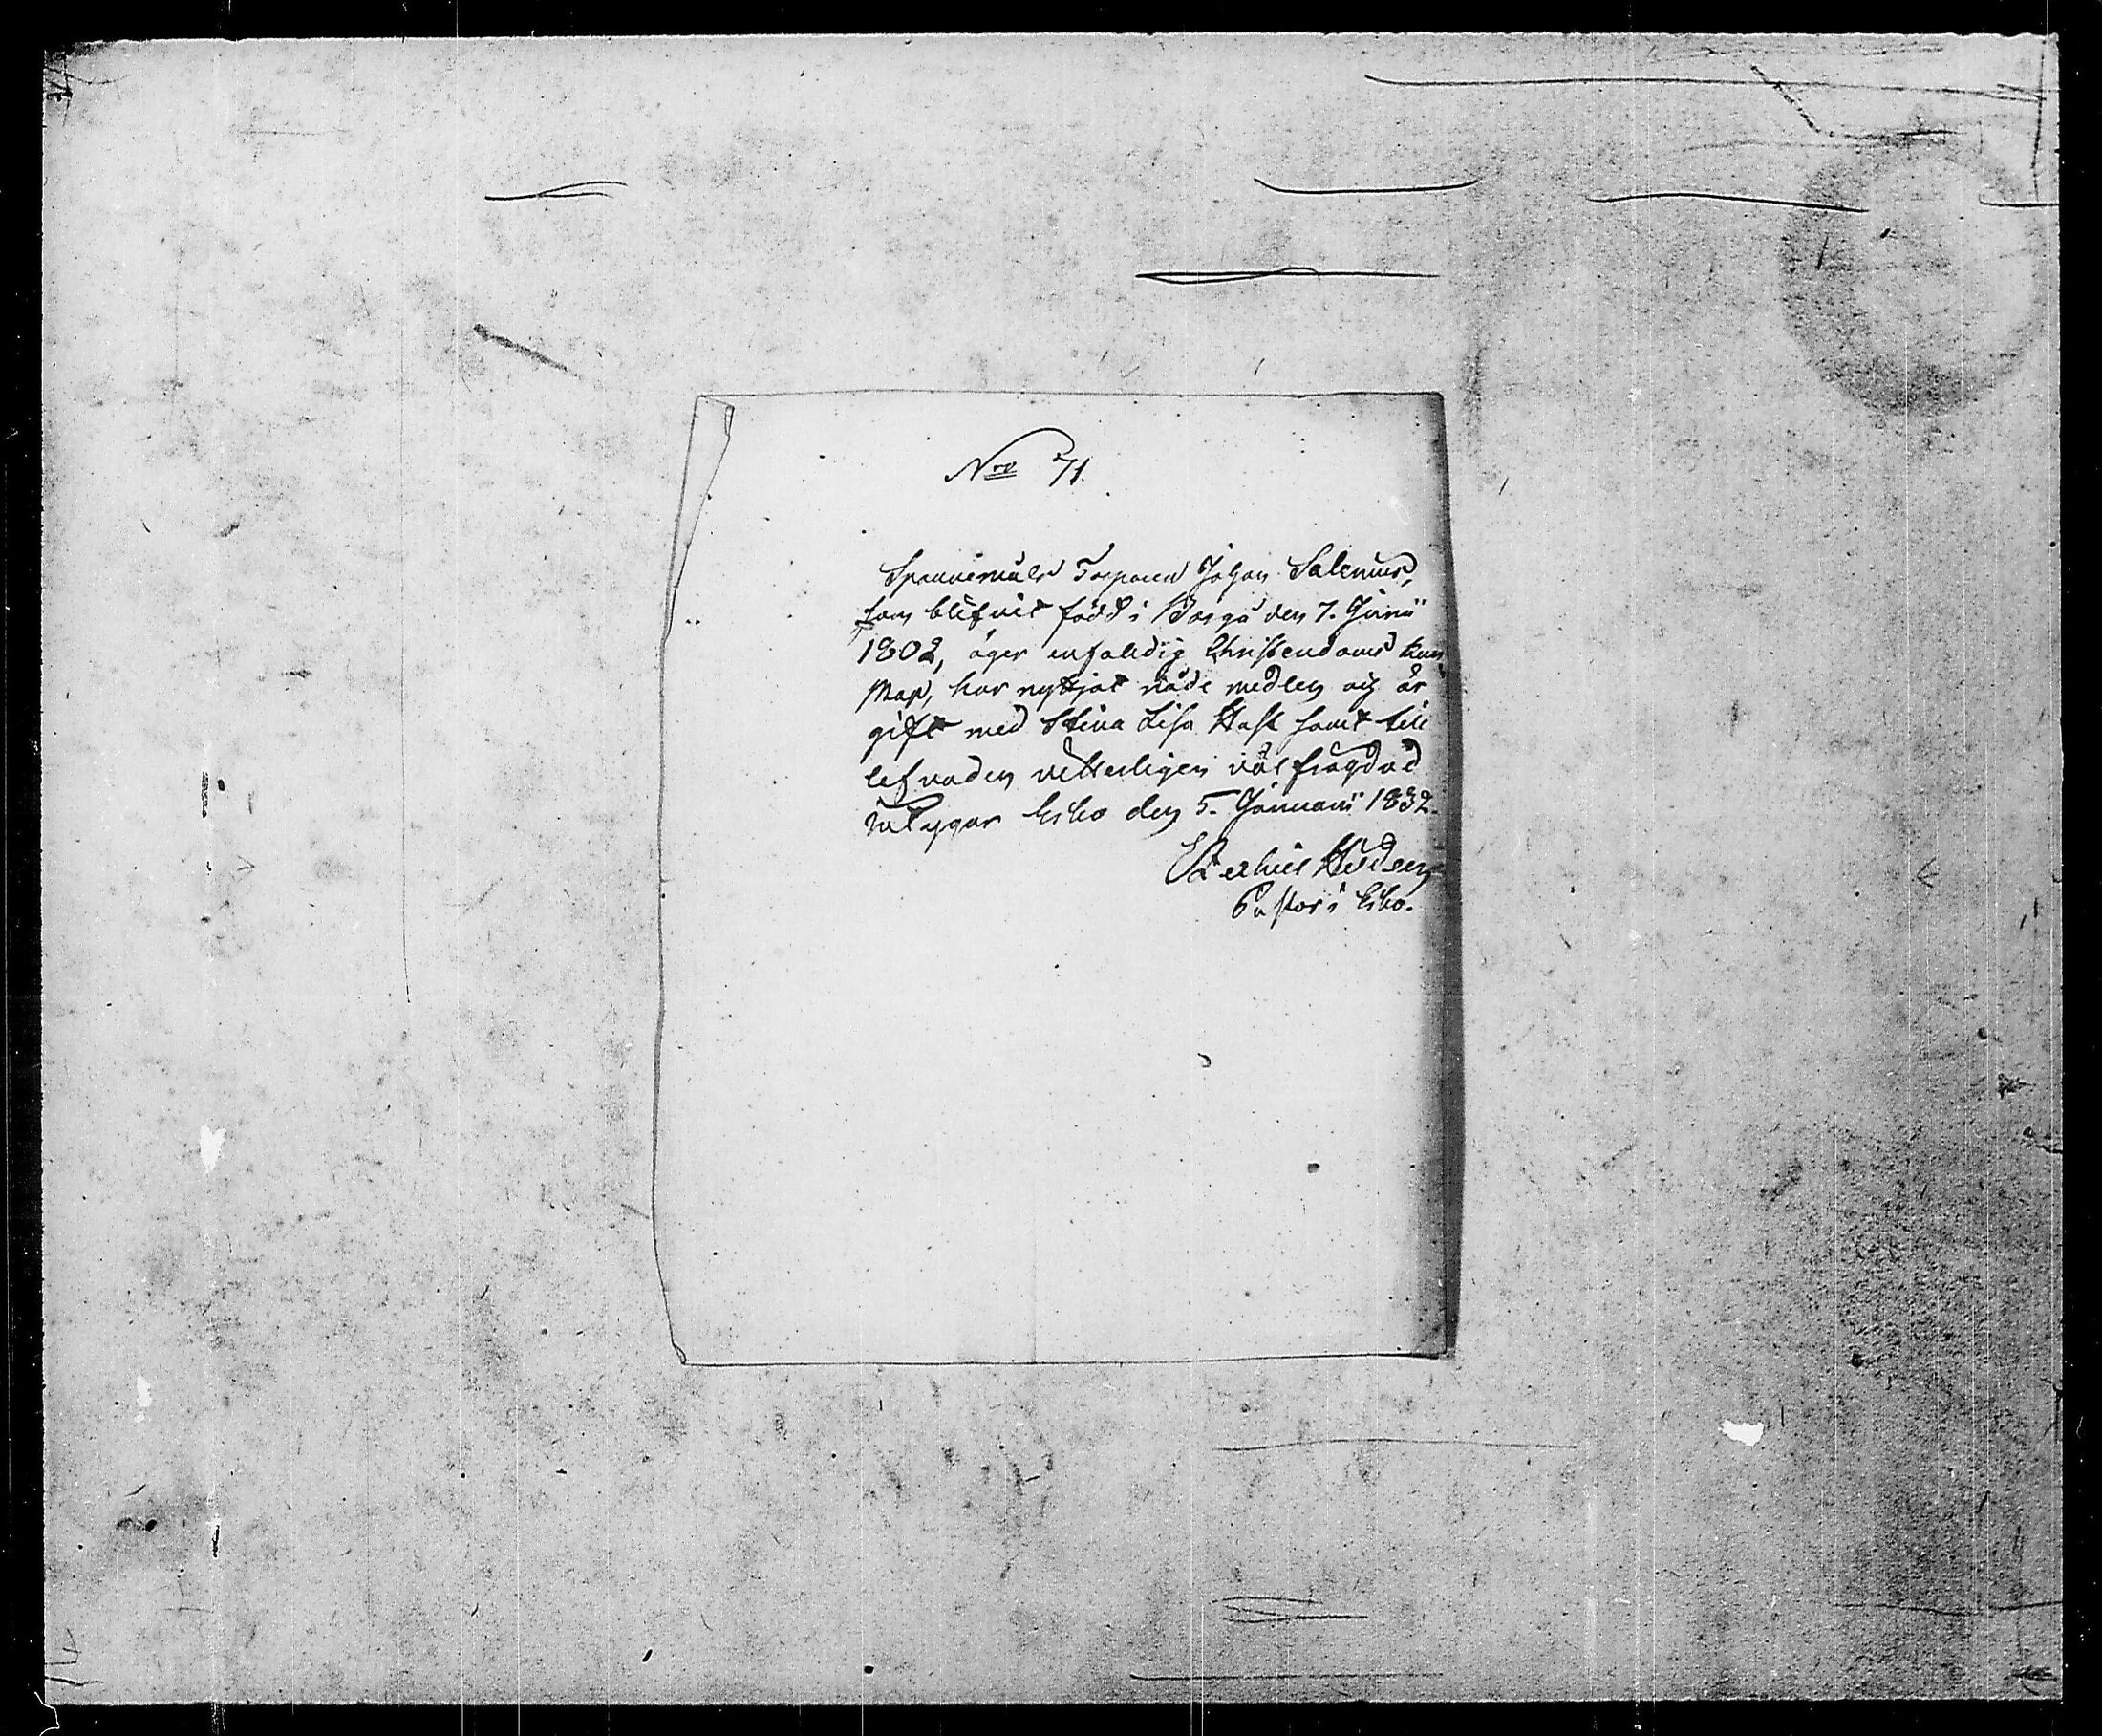 Nro 71.
Torparen Johan Salenius,
som blifvit född i Borgå den 7. Junii
1802, äger enfaldig Christendoms kun
skap, har nyttjat nåde medlen och är
gift med Stina Lisa Hast samt till
lefnaden vitterligen väl frägdad
intygar Esbo den 5. Januarii 1832.
Pastor i Esbo.